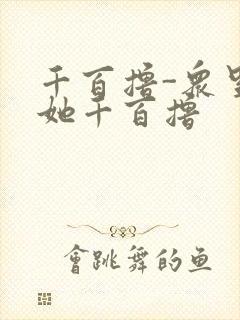 千百撸-众里
她千百撸
會跳舞的鱼